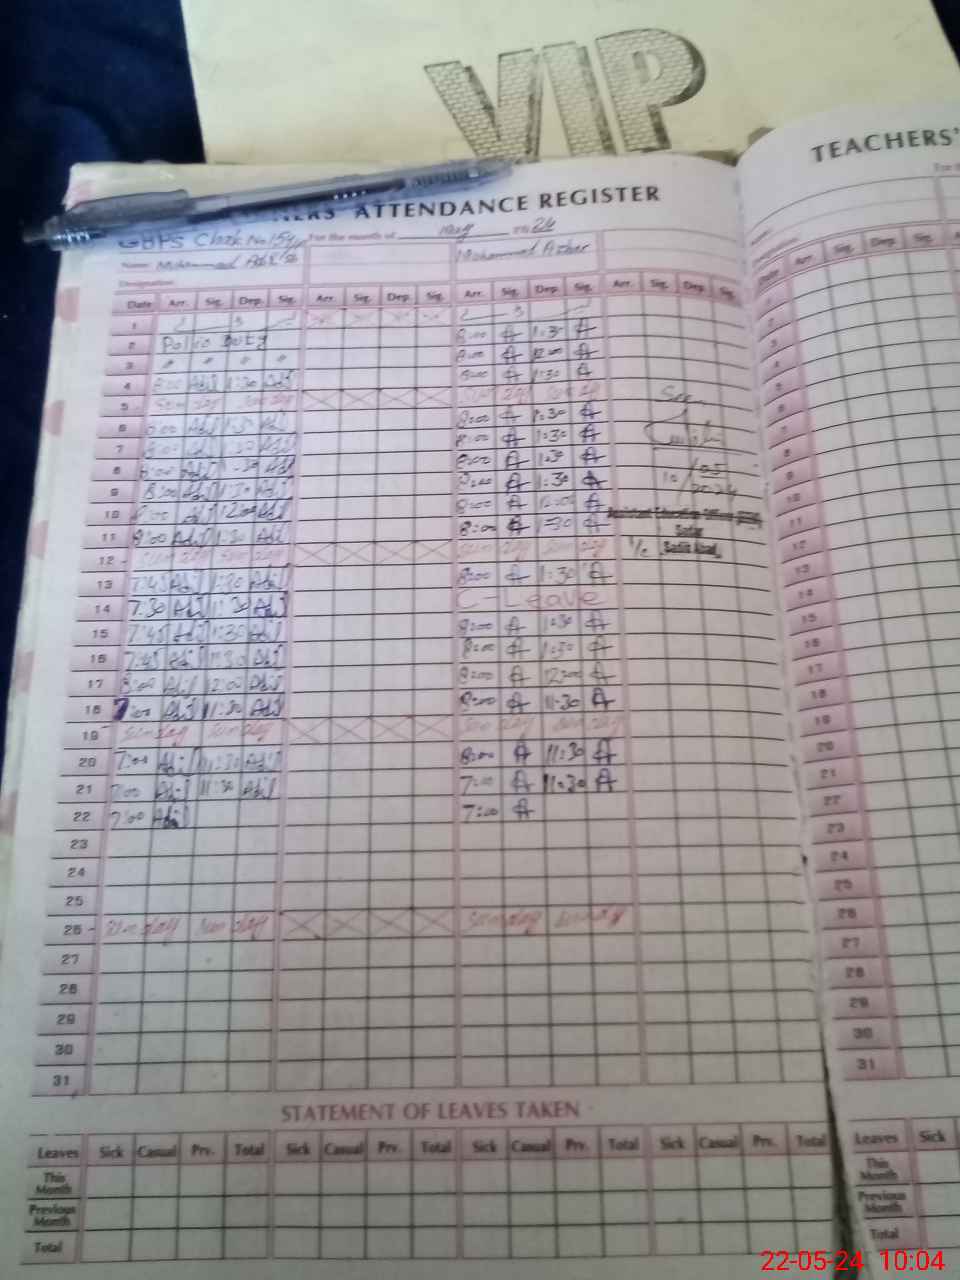 VIP
TEACHERS'
ATTENDANCE REGISTER
GBPS Chak No 15 For the month of May 24
Name: Muhammad Adil Muhammad Azhar
Designation:
Date Arr. Sig. Dep. Sig. Arr. Sig. Dep. Sig. Arr. Sig. Dep. Sig. Arr. Sig. Dep. Sig.
1
2 Polio Duty 8:00 A 1:30 A
3 " " " " 8:00 A 12:00 A
4 8:00 Adil 1:30 Adil 8:00 A 1:30 A
5 Sunday Sunday Sunday Sunday Seen
6 8:00 Adil 1:30 Adil 8:00 A 1:30 A
7 8:00 Adil 1:30 Adil 8:00 A 1:30 A
8 8:00 Adil 1:30 Adil 8:00 A 1:30 A
9 8:00 Adil 1:30 Adil 8:00 A 1:30 A 10/05/2024
10 8:00 Adil 12:00 Adil 8:00 A 12:00 A
Assistant Education Officer
11 8:00 Adil 1:30 Adil 8:00 A 1:30 A Sadar
12 Sunday Sunday Sunday Sunday Sadiq Abad.
13 7:45 Adil 1:30 Adil 8:00 A 1:30 A
14 7:30 Adil 1:30 Adil C-Leave
15 7:45 Adil 1:30 Adil 8:00 A 1:30 A
16 7:45 Adil 1:30 Adil 8:00 A 1:30 A
17 8:00 Adil 12:00 Adil 8:00 A 12:00 A
18 7:00 Adil 11:30 Adil 8:00 A 11:30 A
19 Sunday Sunday Sunday Sunday
20 7:00 Adil 11:30 Adil 8:00 A 11:30 A
21 7:00 Adil 11:30 Adil 7:00 A 11:30 A
22 7:00 Adil 7:00 A
23
24
25
26 Sunday Sunday Sunday Sunday
27
28
29
30
31
STATEMENT OF LEAVES TAKEN
Leaves Sick Casual Prv. Total Sick Casual Prv. Total Sick Casual Prv. Total Sick Casual Prv. Total
This Month
Previous Month
Total
Date Arr. Sig. Dep. Sig.
1
2
3
4
5
6
7
8
9
10
11
12
13
14
15
16
17
18
19
20
21
22
23
24
25
26
27
28
29
30
31
Leaves Sick
This Month
Previous Month
Total
22-05-24 10:04